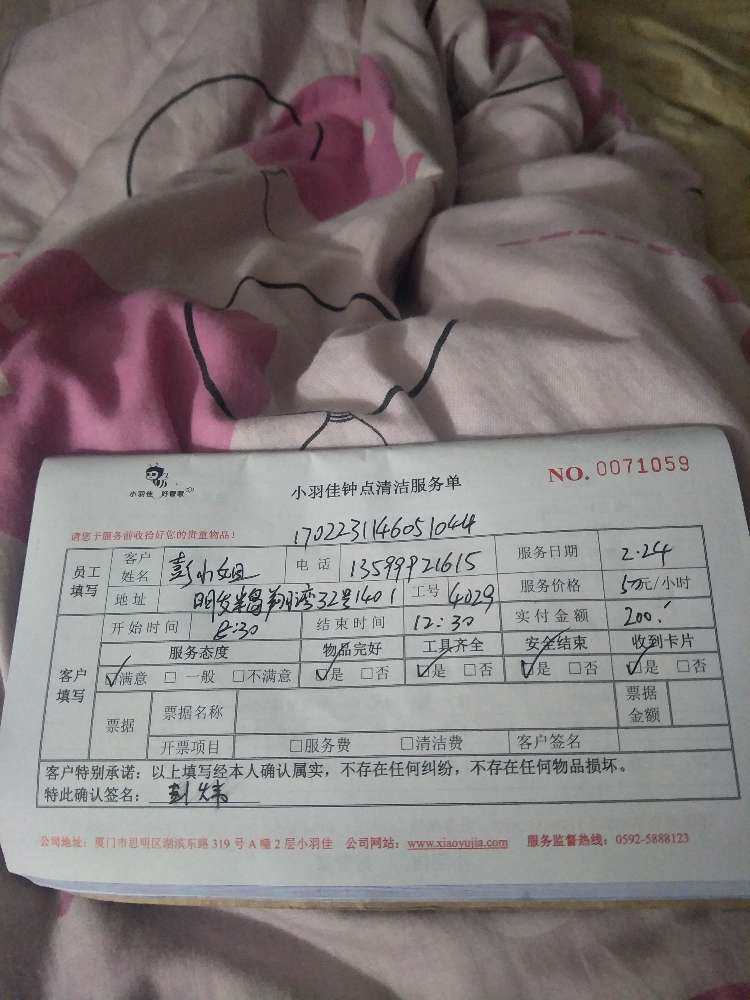 小羽佳 好管家
小羽佳钟点清洁服务单
NO. 0071059
请您于服务前收拾好您的贵重物品！
1702231146051044
员工填写 客户姓名 彭小姐 电话 13599921615 服务日期 2.24
地址 明发 翔湾32号1401 工号 4029 服务价格 50元/小时
客户填写 开始时间 8:30 结束时间 12:30 实付金额 200.
服务态度 物品完好 工具齐全 安全结束 收到卡片
☑满意 □一般 □不满意 ☑是 □否 ☑是 □否 ☑是 □否 ☑是 □否
票据 票据名称 票据金额
开票项目 □服务费 □清洁费 客户签名
客户特别承诺：以上填写经本人确认属实，不存在任何纠纷，不存在任何物品损坏。
特此确认签名： 彭炜
公司地址：厦门市思明区湖滨东路319号A幢2层小羽佳 公司网站：www.xiaoyujia.com 服务监督热线：0592-5888123